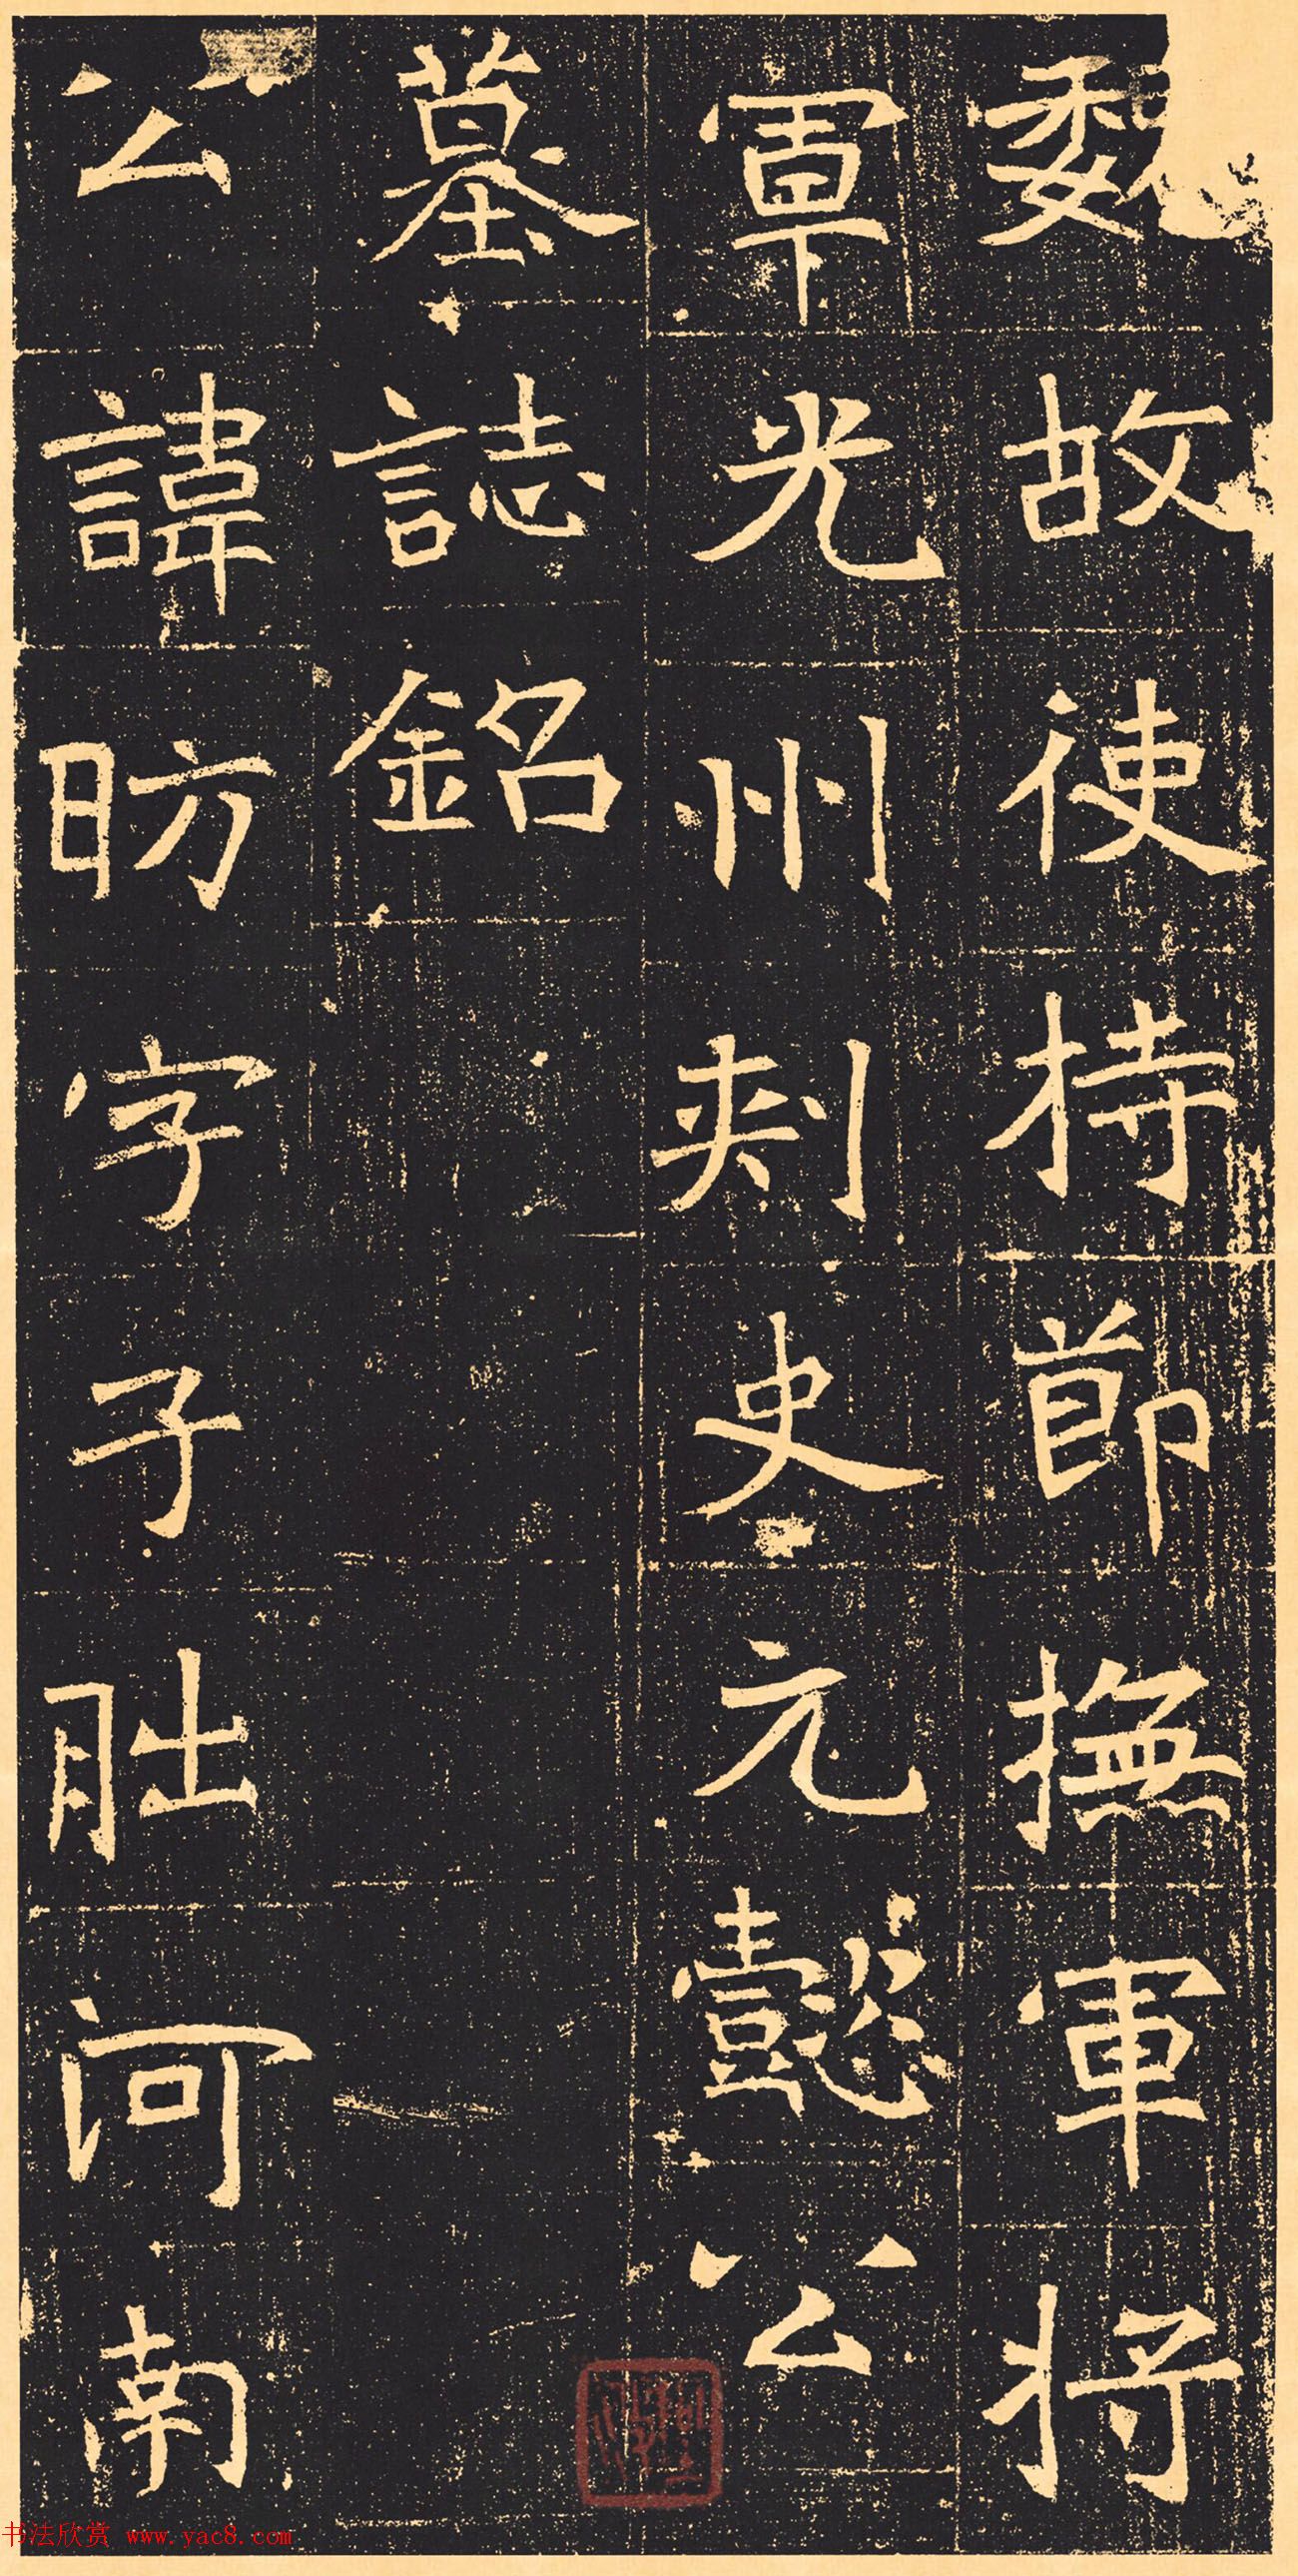 魏故使持節撫軍将
軍光州刾史元懿公
墓誌銘
公諱昉字子朏河南
书法欣赏 www.yac8.com